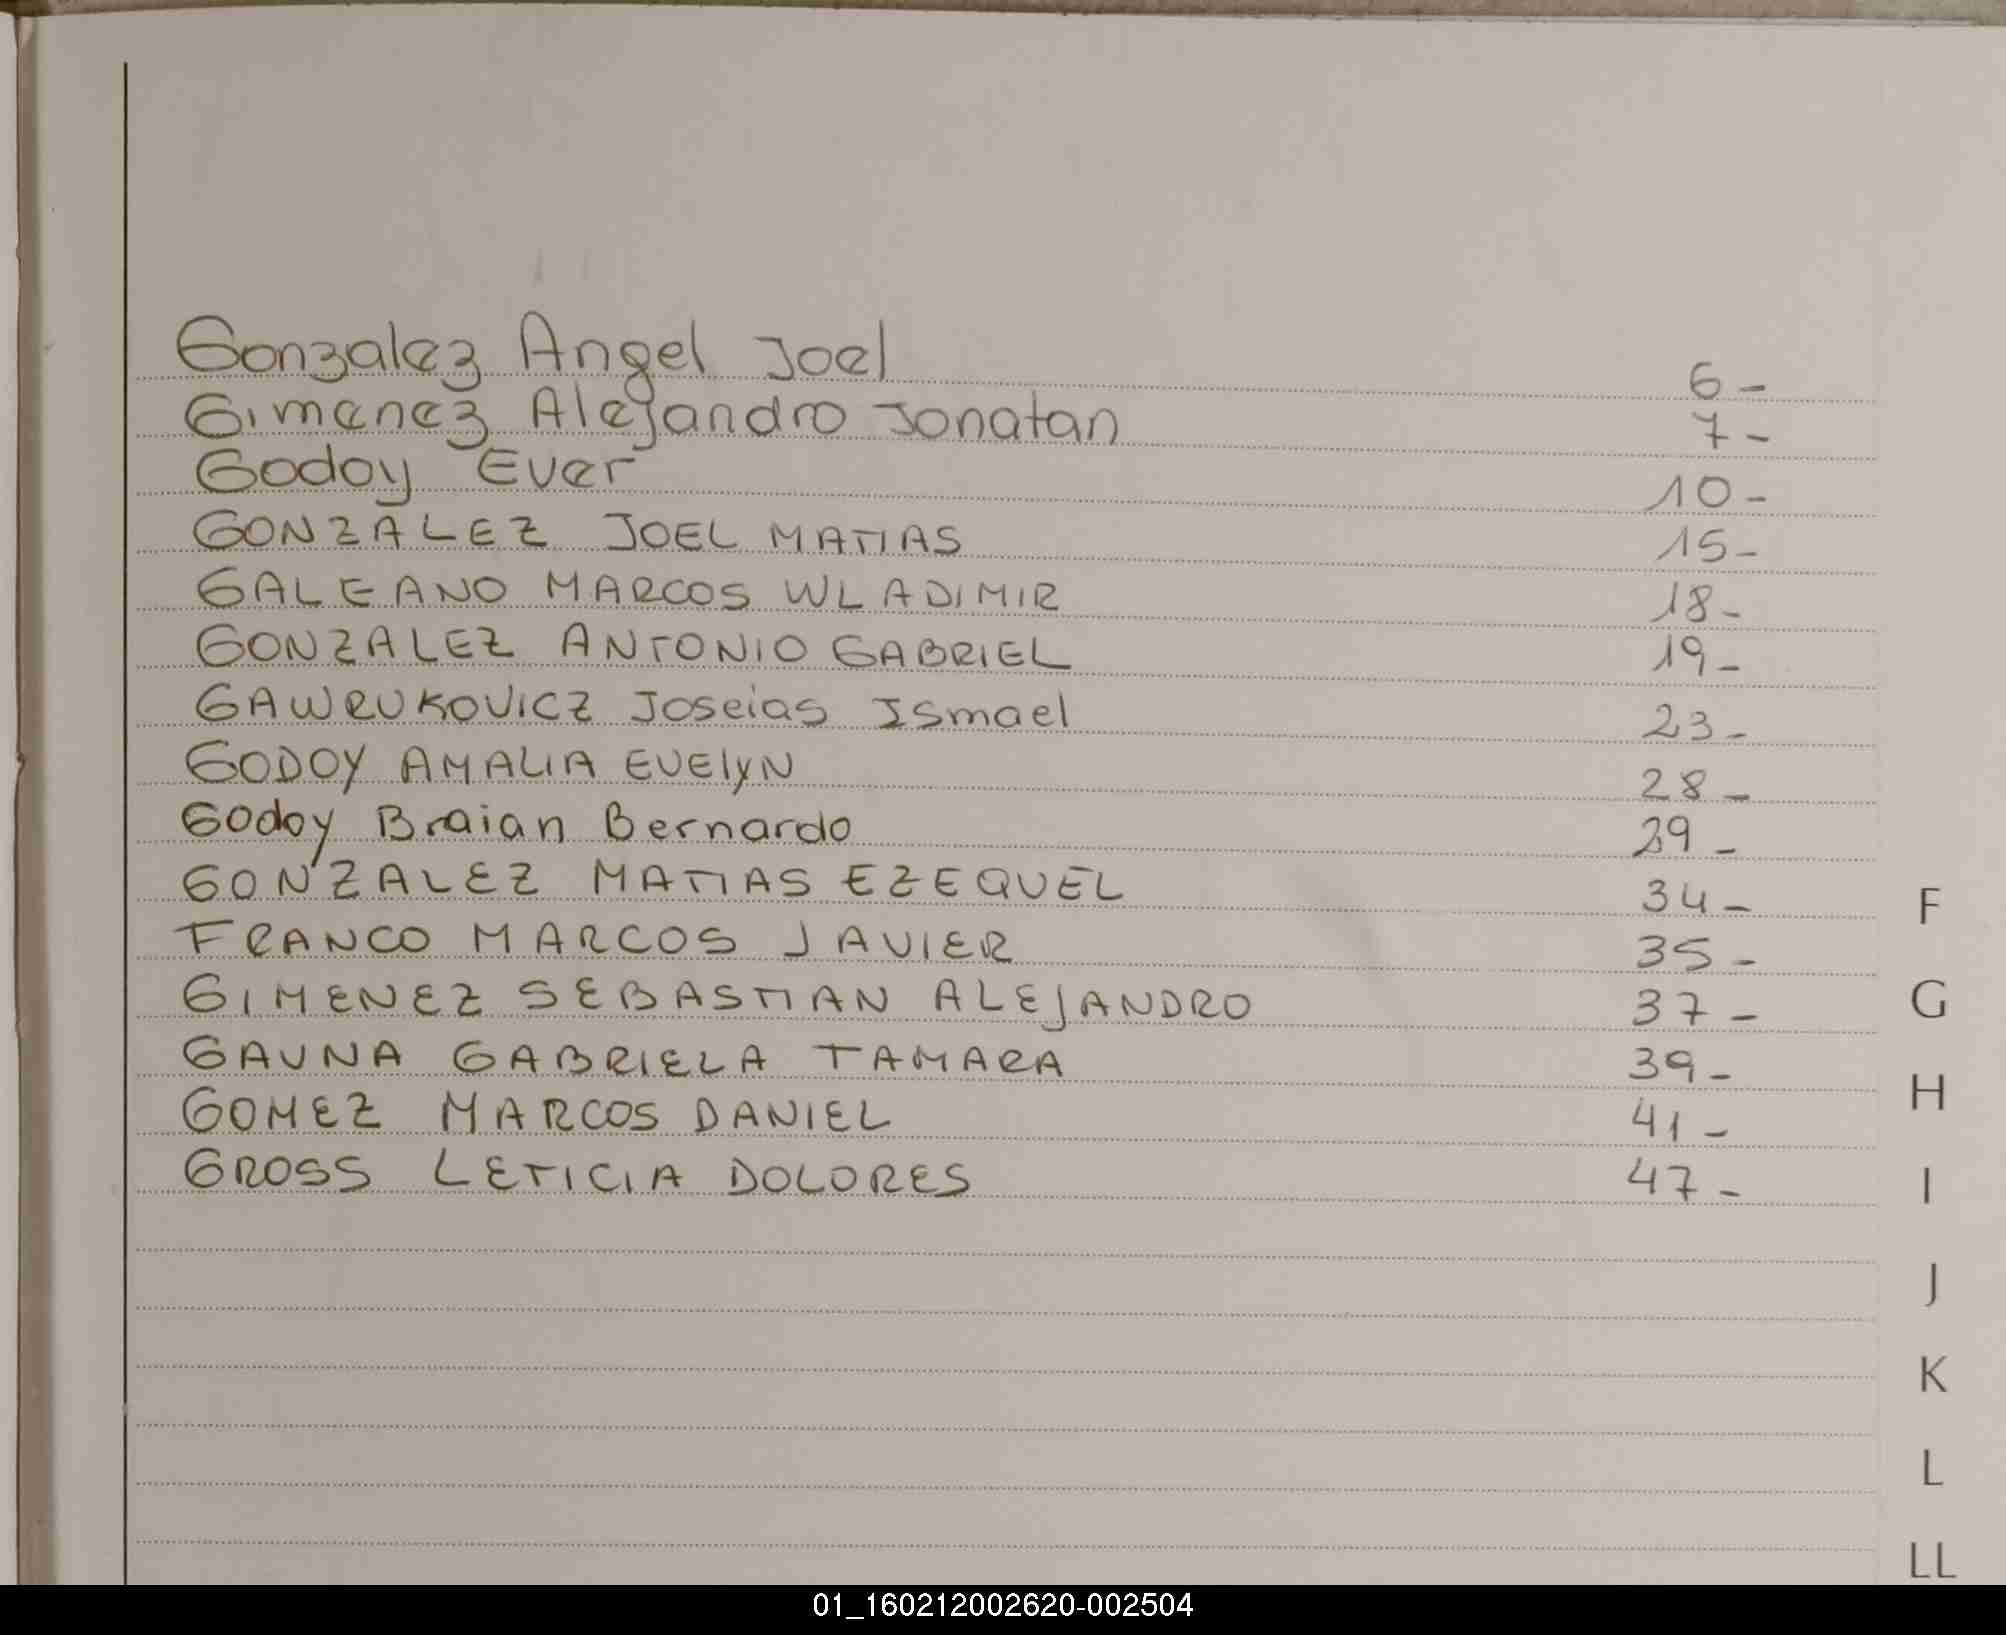 Gonzalez Angel Joel 6-
Gimenez Alejandro Jonatan 7-
Godoy Ever 10-
GONZALEZ JOEL MATIAS 15-
GALEANO MARCOS WLADIMIR 18-
GONZALEZ ANTONIO GABRIEL 19-
GAWRUKOVICZ Joseias Ismael 23-
GODOY AMALIA EVElyN 28-
Godoy Braian Bernardo 29-
GONZALEZ MATIAS EZEQUEL 34-
FRANCO MARCOS JAVIER 35-
GIMENEZ SEBASTIAN ALEJANDRO 37-
GAUNA GABRIELA TAMARA 39-
GOMEZ MARCOS DANIEL 41-
GROSS LETICIA DOLORES 47-
F
G
H
I
J
K
L
LL
01_160212002620-002504